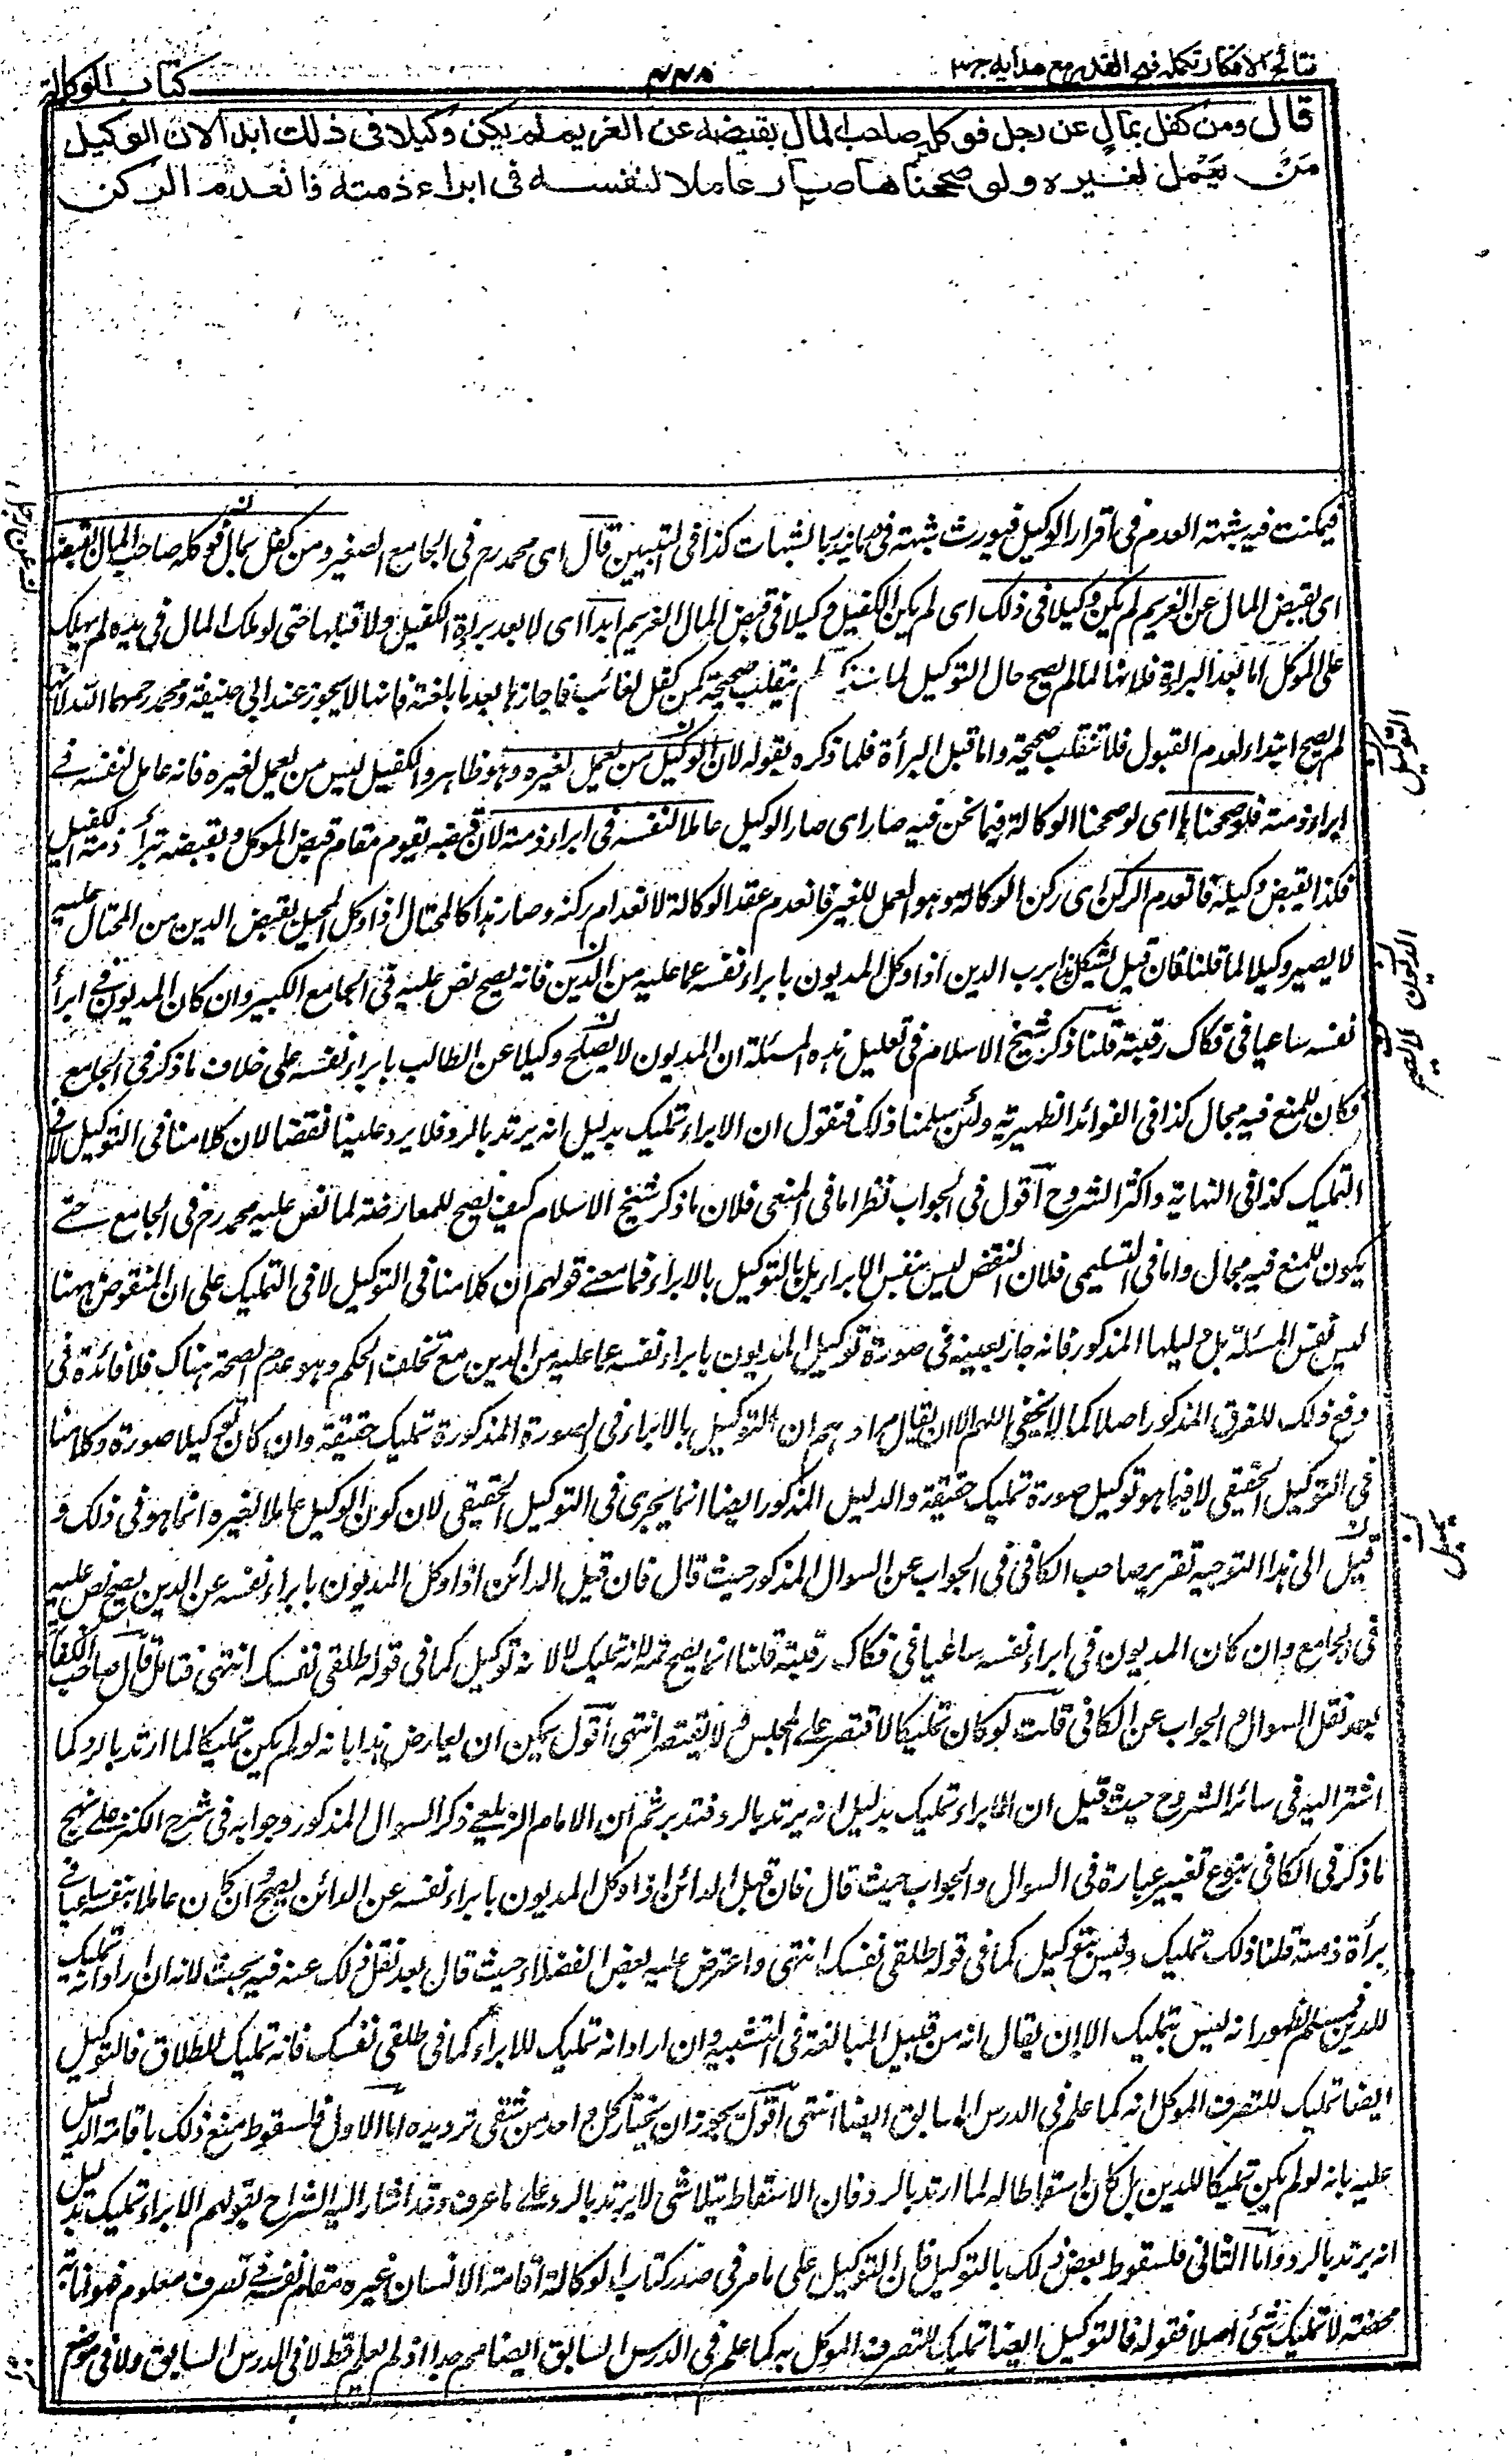 نتائج الافكار تكمله فتح القدير مع هدايه ج٣
٢٢٨
كتاب الوكالة
قال ومن كفل بمال عن رجل فوكله صاحب المال بقبضه عن الغريم لم يكن وكيلا في ذلك ابدا لان الوكيل
من يعمل لغيره ولو صححناها صار عاملا لنفسه في ابراء ذمته فانعدم الركن
فيمكنت فيه شبهة العدم في اقرار الوكيل فيورث شبهة في ما يندرئ بالشبهات كذا في التبيين قال اى محمد رح في الجامع الصغير ومن كفل بمال فوكله صاحب المال بقبضه
اى بقبض المال عن الغريم لم يكن وكيلا في ذلك اى لم يكن الكفيل وكيلا في قبض المال الغريم ابدا اى لا بعد براءة الكفيل ولا قبلها حتى لو هلك المال في يده لم يهلك
على الموكل اما بعد البراءة فلانها لما لم يصح حال التوكيل لما نذكر لم ينقلب صحيحة كمن كفل لغائب فاجازها بعد ما بلغته فانها لا يجوز عند ابى حنيفة ومحمد رحمهما الله لانها
لم يصح ابتداء لعدم القبول فلا تنقلب صحيحة واما قبل البرأة فلما ذكره بقوله لان الوكيل من يعمل لغيره وهو ظاهر والكفيل ليس من يعمل لغيره فانه عامل لنفسه في
ابراء ذمته فلو صححناها اى لو صححنا الوكالة فيما نحن فيه صار اى صار الوكيل عاملا لنفسه في ابراء ذمته لان قبضه يقوم مقام قبض الموكل وبقبضه تبرأ ذمة الكفيل
فكذا بقبض وكيله فانعدم الركن اى ركن الوكالة وهو العمل للغير فانعدم عقد الوكالة لانعدام ركنه وصار هذا كالمحتال اذا وكل المحيل بقبض الدين من المحتال عليه
لا يصير وكيلا لما قلنا فان قيل يشكل هذا برب الدين اذا وكل المديون بابراء نفسه عما عليه من الدين فانه يصح نص عليه في الجامع الكبير وان كان المديون في ابرأ
نفسه ساعيا في فكاك رقبته قلنا ذكر شيخ الاسلام في تعليل هذه المسئلة ان المديون لا يصلح وكيلا عن الطالب بابراء نفسه على خلاف ما ذكر في الجامع
فكان للمنع فيه مجال كذا في الفوائد الظهيرية ولئن سلمنا ذلك فنقول ان الابراء تمليك بدليل انه يرتد بالرد فلا يرد علينا نقضا لان كلامنا في التوكيل لا في
التمليك كذا في النهاية واكثر الشروح اقول في الجواب نظر اما في المنعى فلان ما ذكر شيخ الاسلام كيف يصح للمعارضة لما نص عليه محمد رح في الجامع حتى
يكون للمنع فيه مجال واما في التسليمى فلان النقض ليس بنفس الابراء بل بالتوكيل بالابراء فما معنى قولهم ان كلامنا في التوكيل لا في التمليك على ان المنقوض ههنا
ليس نفس المسئلة بل دليلها المذكور فانه جاز بعينه في صورة توكيل المديون بابراء نفسه عما عليه من الدين مع تخلف الحكم وهو عدم الصحة هناك فلا فائدة في
دفع ذلك للفرق المذكور اصلا كما لا يخفى اللهم الا ان يقال مرادهم ان التوكيل بالابراء في الصورة المذكورة تمليك حقيقة وان كان توكيلا صورة وكلامنا
في التوكيل الحقيقى لا فيما هو توكيل صورة تمليك حقيقة والدليل المذكور ايضا انما يجرى في التوكيل الحقيقى لان كون الوكيل عاملا لغيره انما هو في ذلك و
قبيل الى هذا التوجيه تقرير صاحب الكافى في الجواب عن السوال المذكور حيث قال فان قيل الدائن اذا وكل المديون بابراء نفسه عن الدين يصح نص عليه
في الجامع وان كان المديون في ابراء نفسه ساعيا في فكاك رقبته قلنا انما يصح ثمه لانه تمليك لا لانه توكيل كما في قوله طلقى نفسك انتهى فتامل قال صاحب الكفاية
بعد نقل السوال والجواب عن الكافى قلت لو كان تمليكا لاقتصر على المجلس ولا يقتصر انتهى اقول يمكن ان يعارض هذا بانه لو لم يكن تمليكا لما ارتد بالرد كما
اشتر اليه في سائر الشروح حيث قيل ان الابراء تمليك بدليل انه يرتد بالرد فتدبر ثم ان الامام الزيلعى ذكر السوال المذكور وجوابه في شرح الكنز على نهج
ما ذكر في الكافى بنوع تغيير عبارة في السوال والجواب حيث قال فان قيل الدائن اذا وكل المديون بابراء نفسه عن الدائن يصح وان كان عاملا لنفسه ساعيا في
برأة ذمته قلنا ذلك تمليك وليس بتوكيل كما في قوله طلقى نفسك انتهى واعترض عليه بعض الفضلاء حيث قال بعد نقل ذلك عنه فيه بحث لانه ان اراد انه تمليك
للدين فمسلم لظهور انه ليس بتمليك الا ان يقال انه من قبيل المبالغة في التشبيه وان اراد انه تمليك للابراء كما في طلقى نفسك فانه تمليك للطلاق فالتوكيل
ايضا تمليك للتصرف الموكل انه كما علم في الدرس السابق ايضا انتهى اقول يجوز ان يختار كل واحد من شقى ترديده اما الاول فلسقوط منع ذلك باقامة الدليل
عليه بانه لو لم يكن تمليكا للدين بل كان اسقاطا له لما ارتد بالرد فان الاسقاط يتلاشى لا يرتد بالرد على ما عرف وقد اشار اليه الشراح بقولهم الابراء تمليك بدليل
انه يرتد بالرد واما الثانى فلسقوط بعض ذلك بالتوكيل فان التوكيل على ما مر في صدر كتاب الوكالة اقامة الانسان غيره مقام نفسه في تصرف معلوم فهو انابة
محضة لا تمليك شئ اصلا فقوله فالتوكيل ايضا تمليك للتصرف الموكل به كما علم في الدرس السابق ايضا ممنوع جدا اذ لم يعلم قط لا في الدرس السابق ولا في موضع